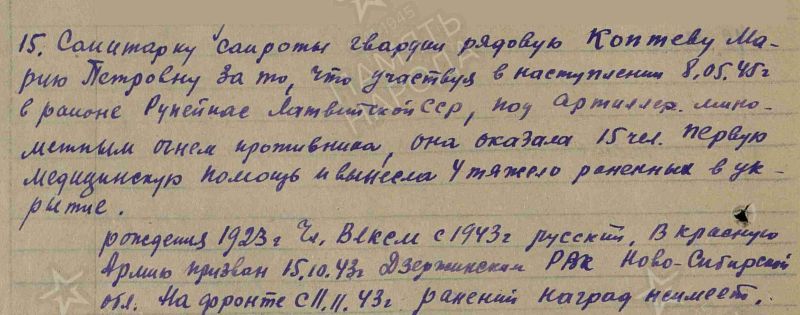 15. Санитарку санроты гвардии рядовую Коптеву Ма-
рию Петровну за то, что участвуя в наступлении 8.05.45г
в районе Рупейкас Латвийской ССР, под артиллер. мино-
метным огнем противника, она оказала 15 чел. первую
медицинскую помощь и вынесла 4 тяжело раненных в ук-
рытие.
рождения 1923г Чл. ВЛКСМ с 1943г русский, В красную
Армию призван 15.10.43г Дзержинским РВК Ново-Сибирской
обл. На фронте с 11.11.43г. ранений наград неимеет.
ПАМЯТЬ
НАРОДА
1945